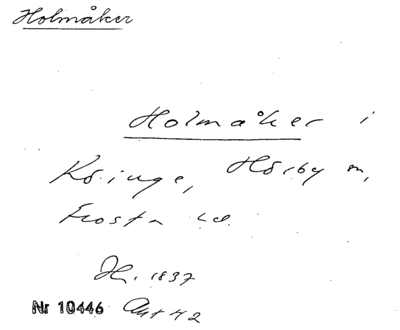 Holmåker
Holmåker i
Hörby m,
Frosta hd.
1837
Nr 10446 Akt 42